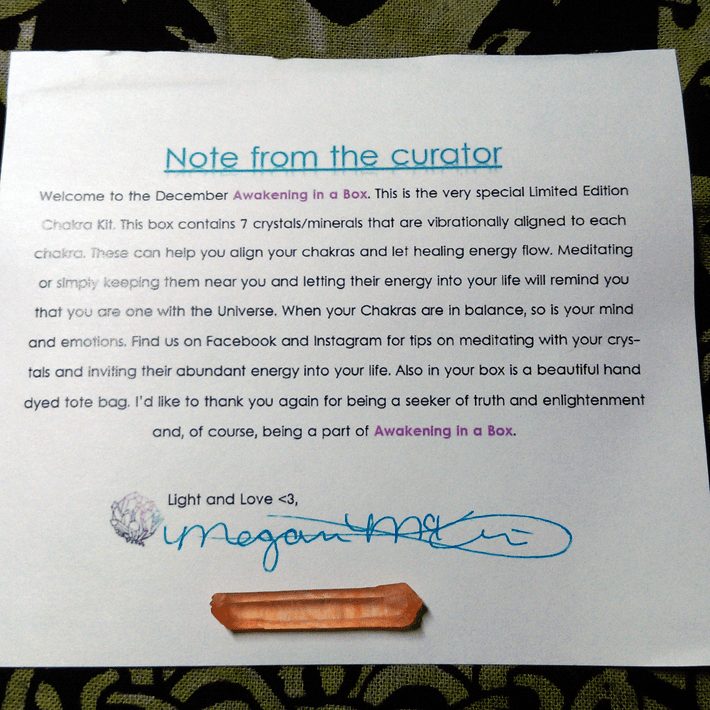 Note from the curator
Welcome to the December Awakening in a Box. This is the very special Limited Edition
Chakra Kit. This box contains 7 crystals/minerals that are vibrationally aligned to each
chakra. These can help you align your chakras and let healing energy flow. Meditating
or simply keeping them near you and letting their energy into your life will remind you
that you are one with the Universe. When your Chakras are in balance, so is your mind
and emotions. Find us on Facebook and Instagram for tips on meditating with your crys-
tals and inviting their abundant energy into your life. Also in your box is a beautiful hand
dyed tote bag. I'd like to thank you again for being a seeker of truth and enlightenment
and, of course, being a part of Awakening in a Box.
Light and Love <3,
Megan